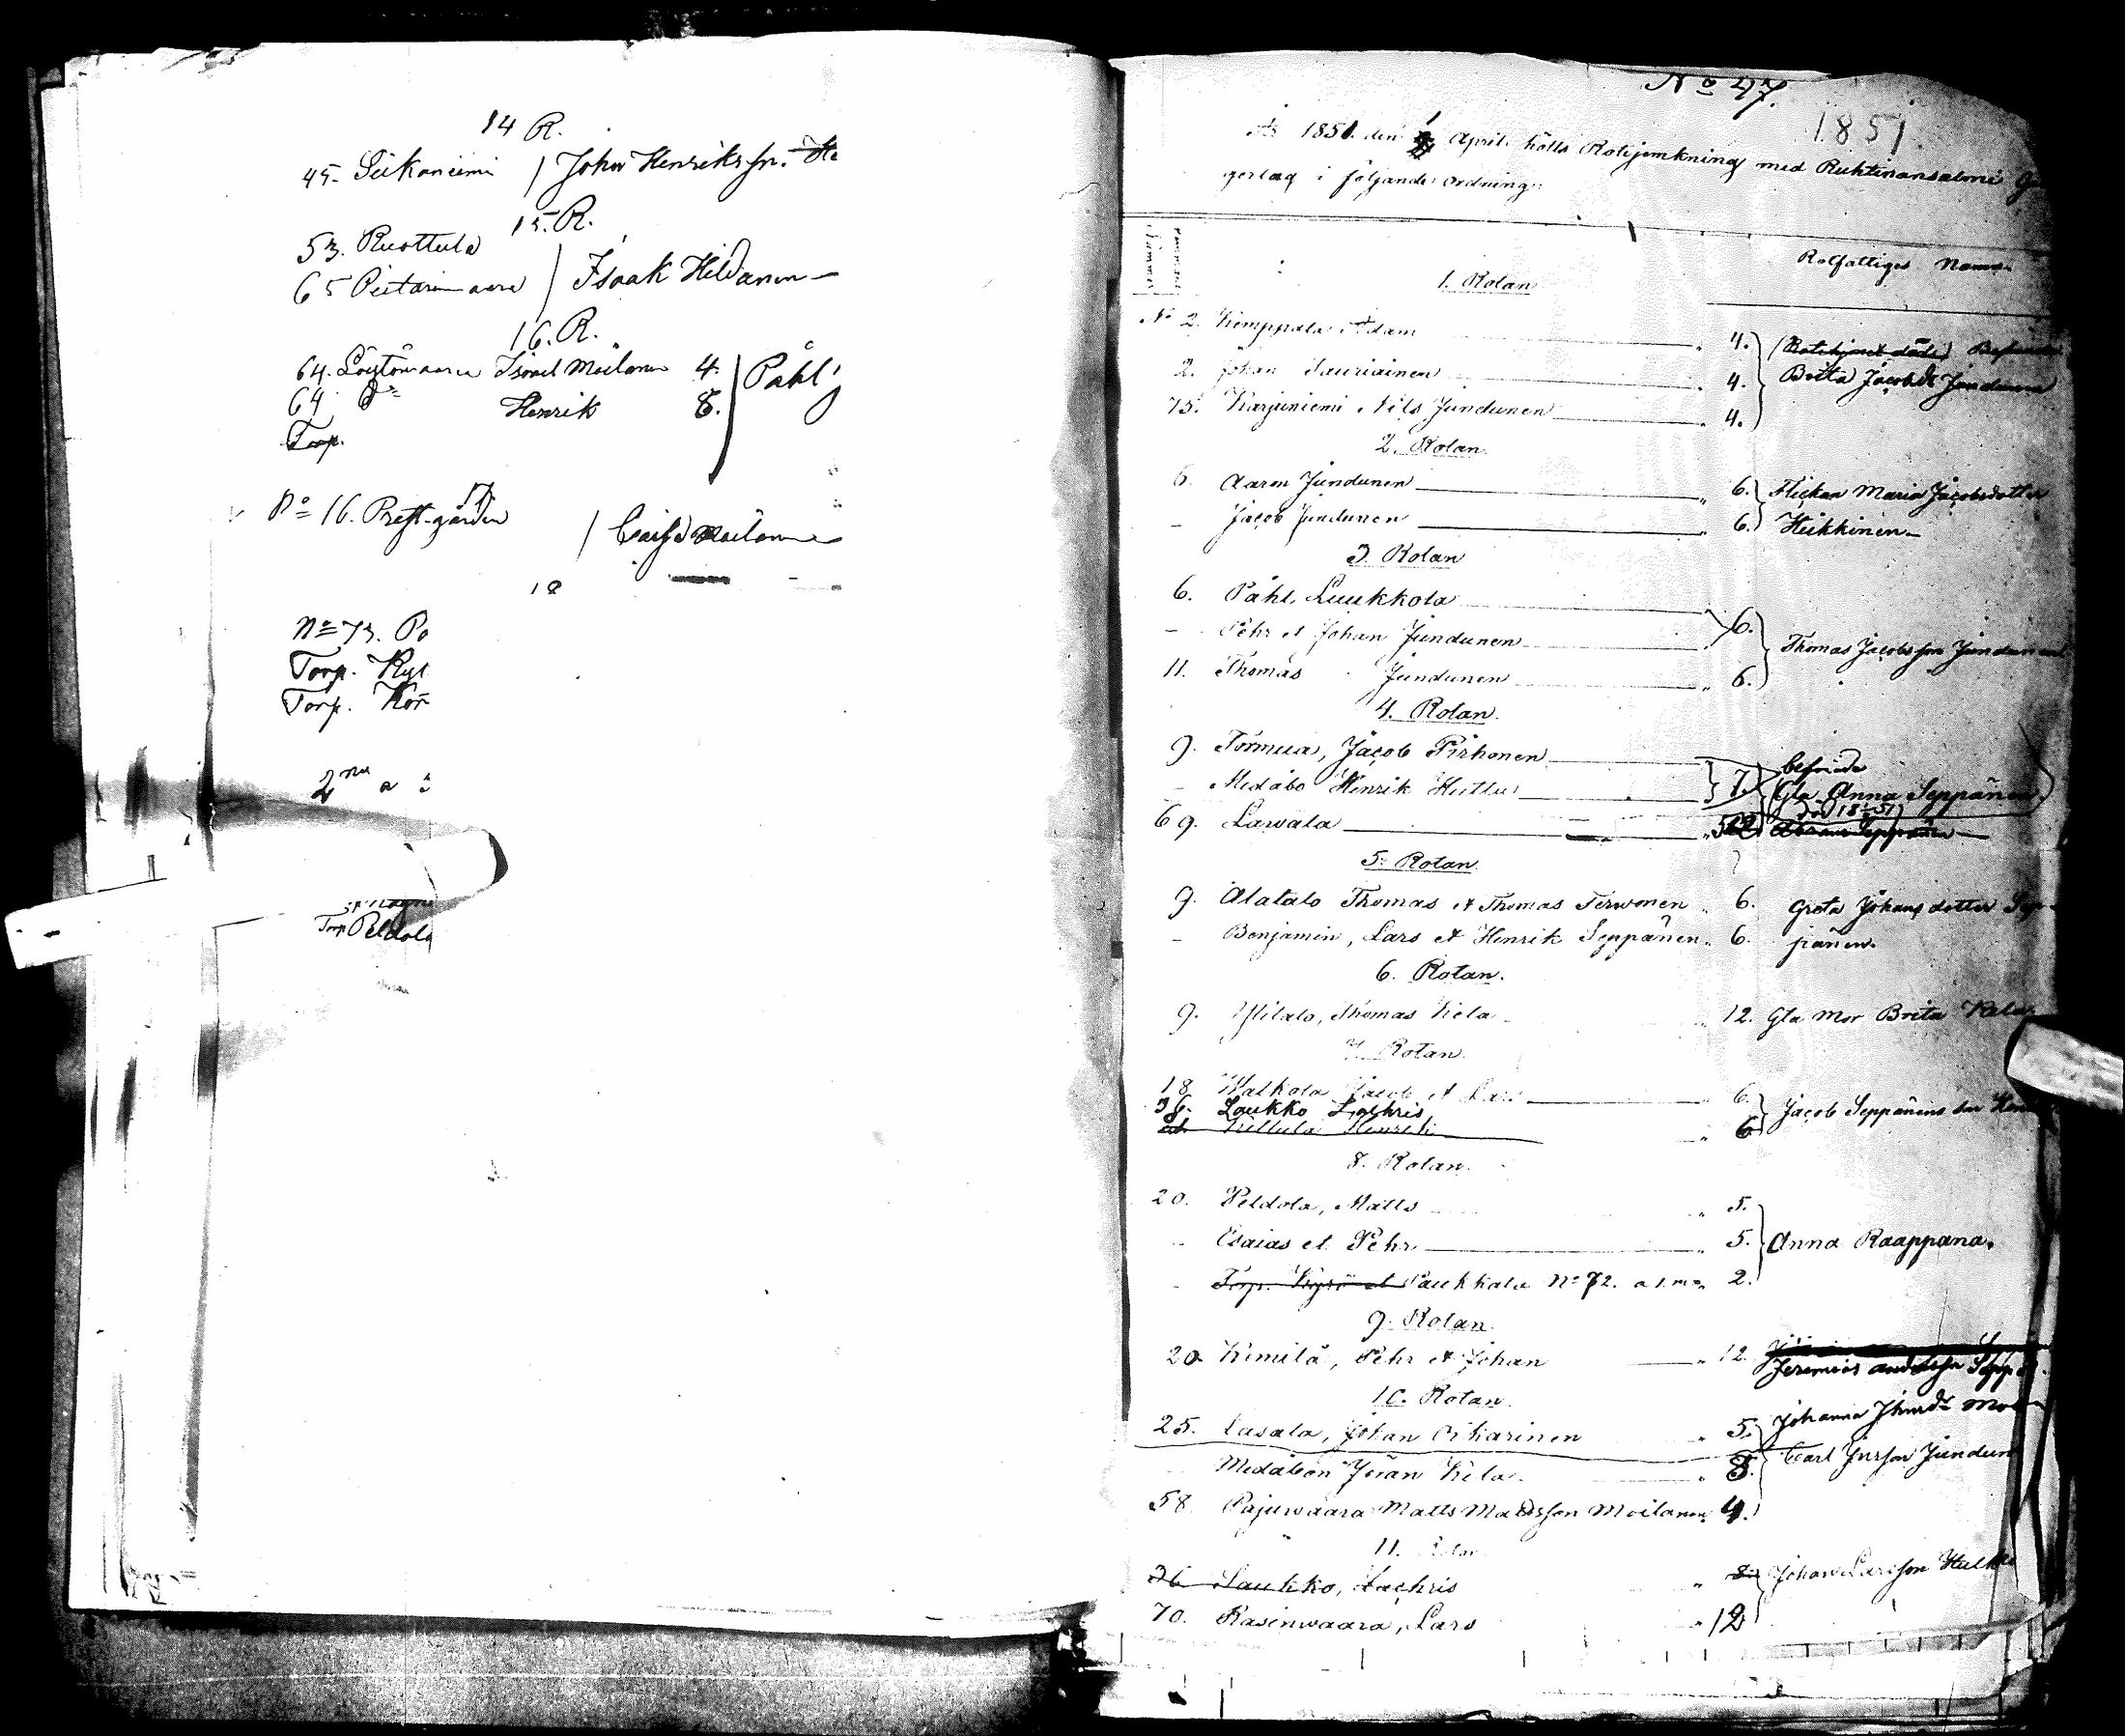 14 R.
45. Siikaniemi / Johan Henriksson. He
15. R.
53. Ruottula
65 Pietarin aara / Isaak Heldanen
16. R.
64. Löytöwaara Israel Moilanen 4.
64 Do Henrik 8. Påhl
Torp.
No 16. Prest-gården / Caisa Moilanen
18
No 73. Po
Torp. Kyl
Torp. Kor
2
Torp Peldola
No 47.
1851
År 1851. den 1 April hölls Rotejemkning med Ruhtinansalmi
gerlag i följande ordning:
Rotfattiges Namn
1. Rotan
No 2. Kemppala Adam 4. Be
2. Johan Sauriainen 4. Brita Jacobsdr Jundunen
75. Karjuniemi Nils Jundunen 4.
2. Rotan.
6. Aaron Jundunen 6. Flickan Maria Jacobsdotter
- Jacob Jundunen 6. Heikkinen
3. Rotan
6. Påhl Luukkola
- Pehr et Johan Jundunen 6. Thomas Jacobsson Jundunen
11. Thomas Jundunen 6.
4. Rotan.
9. Törmua, Jacob Pirhonen befriade
- Medåbo Henrik Huttu 7. Gla Anna Seppänen
69. Lawala
5. Rotan.
9. Alatalo Thomas et Thomas Terwonen 6. Greta Johansdotter Sep-
- Benjamin, Lars et Henrik Seppänen 6. pänen.
6. Rotan.
9. Ylitalo, Thomas Kela 12. Gla Mor Brita Kela
7. Rotan.
18 Walkola Jacob et Lars 6. Jacob Seppänens
36. Laukko Zachris
Kettula Henrik 6
8. Rotan.
20. Peldola, Matts 5.
- Esaias et Pehr 5. Anna Raappana.
- Torp. Kyrö et Paukkala No 72. 2.
9. Rotan.
20 Kemilä, Pehr et Johan 12.
Jeremias Andersson Sepp
10. Rotan.
25. Lasala, Johan Oikarinen 5. Johanna
Medåboen Jöran Kela 3. Carl Jörsson Jundun
58. Pajuwaara Matts Mattsson Moilanen 4.
11. Rotan
36 Laukko, Zachris 8. Johan Larsson Hulk
70. Rasinwaara, Lars 12